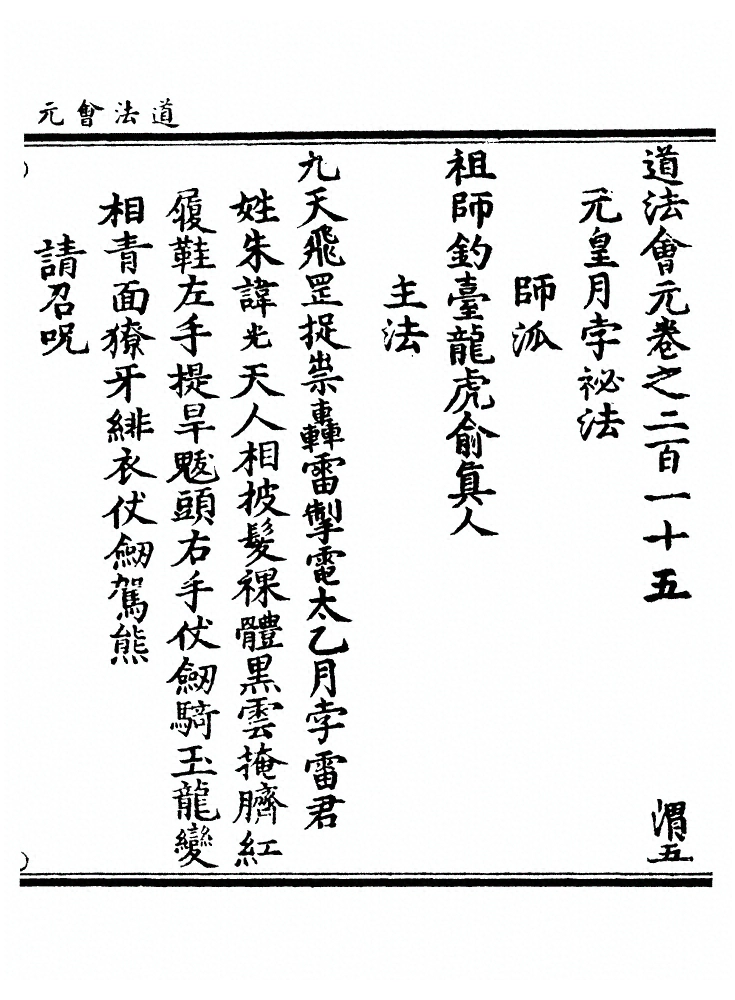 道法會元
道法會元卷之二百一十五 渭五
元皇月孛祕法
師派
祖師釣臺龍虎俞真人
主法
九天飛罡捉祟轟雷掣電太乙月孛雷君
姓朱諱光天人相披髮裸體黑雲掩臍紅
履鞋左手提旱魃頭右手仗劒騎玉龍變
相青面獠牙緋衣仗劒駕熊
請召呪